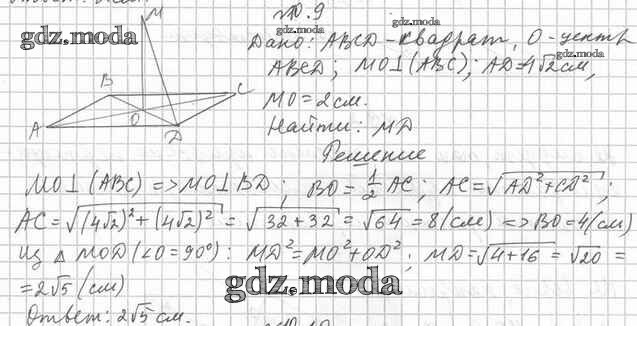 № 10.9
gdz.moda
gdz.moda
Дано: ABCD - квадрат, O - центр
gdz.moda
ABCD; MO⊥(ABC); AD=4√2см,
MO=2см.
Найти: MD
M
B
C
O
A
D
Решение
MO⊥(ABC)=>MO⊥BD; BO=1/2 AC; AC=√(AD²+CD²);
AC=√((4√2)²+(4√2)²)=√(32+32)=√64=8(см)=>BO=4(см)
Из △MOD(∠O=90°): MD²=MO²+OD²; MD=√(4+16)=√20=
=2√5(см)
gdz.moda
Ответ: 2√5 см.